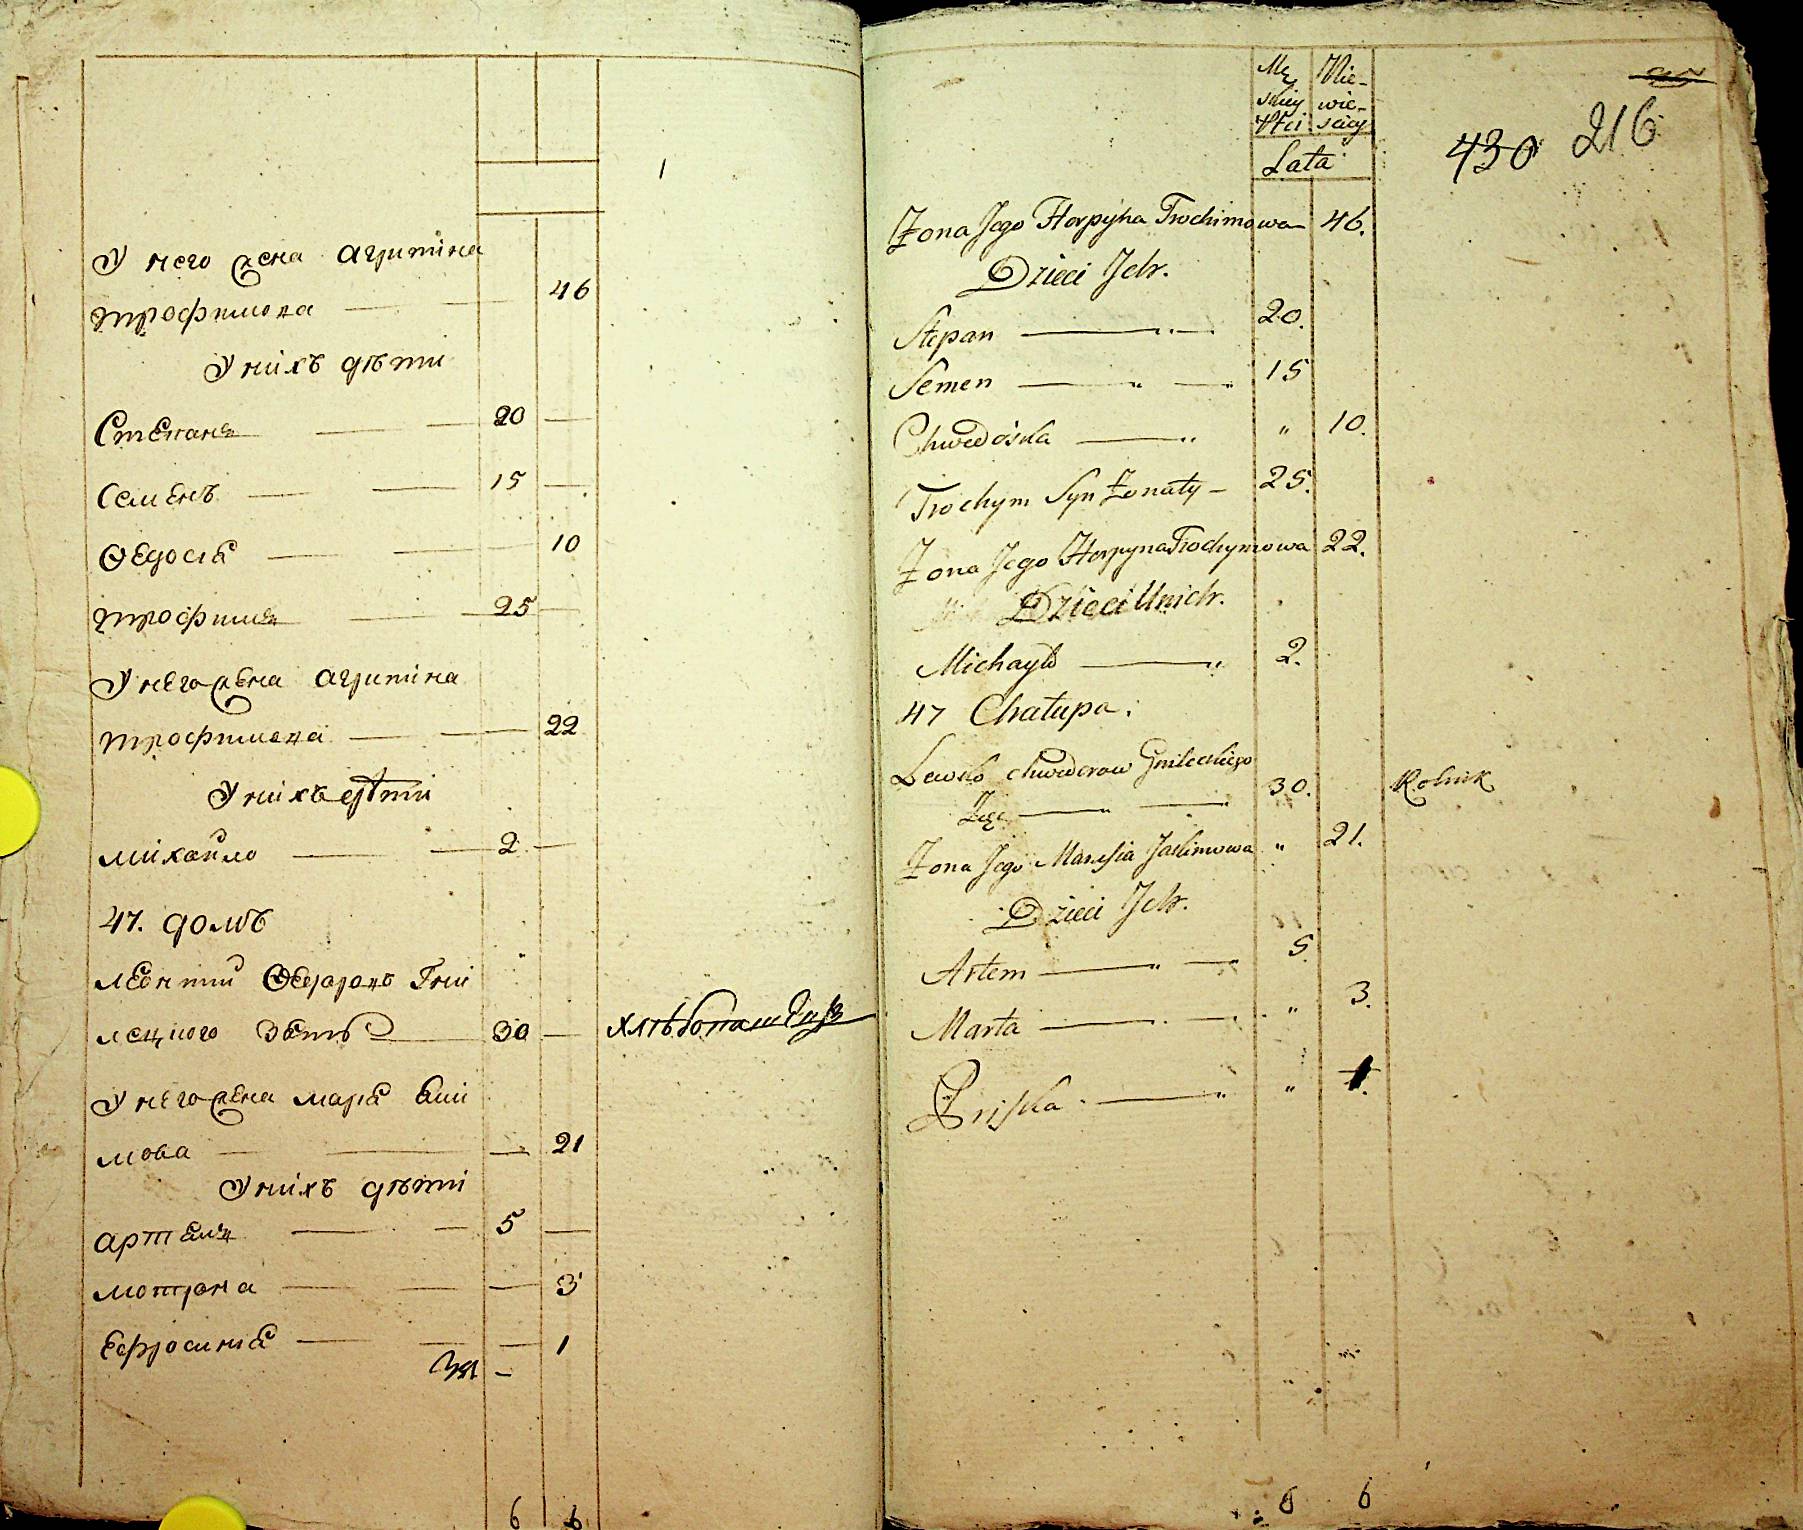 У него жена агрипина
трофимова 46
У нихъ дѣти
Степанъ 20
Семенъ 15
Ѳедосіа 10
трофимъ 25
У него жена агрипина
трофимова 22
У нихъ дѣти
михайло 2
47. домъ
леонтій Ѳедоровъ Гни
лецкого зять 30 хлѣбопашецъ
У него жена маріа аки
мова 21
У нихъ дѣти
артемъ 5
мотрона 3
Ефросиніа 1
6 6
Mę Nie-
skiey wie-
płci sciey
Lata
430 216
Żona Jego Horpyna Trochimowa 46.
Dzieci Ich.
Stepan 20.
Semen 15
Chwedośka " 10.
Trochym Syn Żonaty 25.
Żona Jego Horpyna Trochymowa 22.
Dzieci Unich.
Michayło 2.
47 Chałupa.
Lewko Chwedorow Gnileckiego
Zięć 30. Rolnik
Żona Jego Marysia Jachimowa " 21.
Dzieci Ich.
Artem 5.
Marta " 3.
Pryska " 1.
6 6